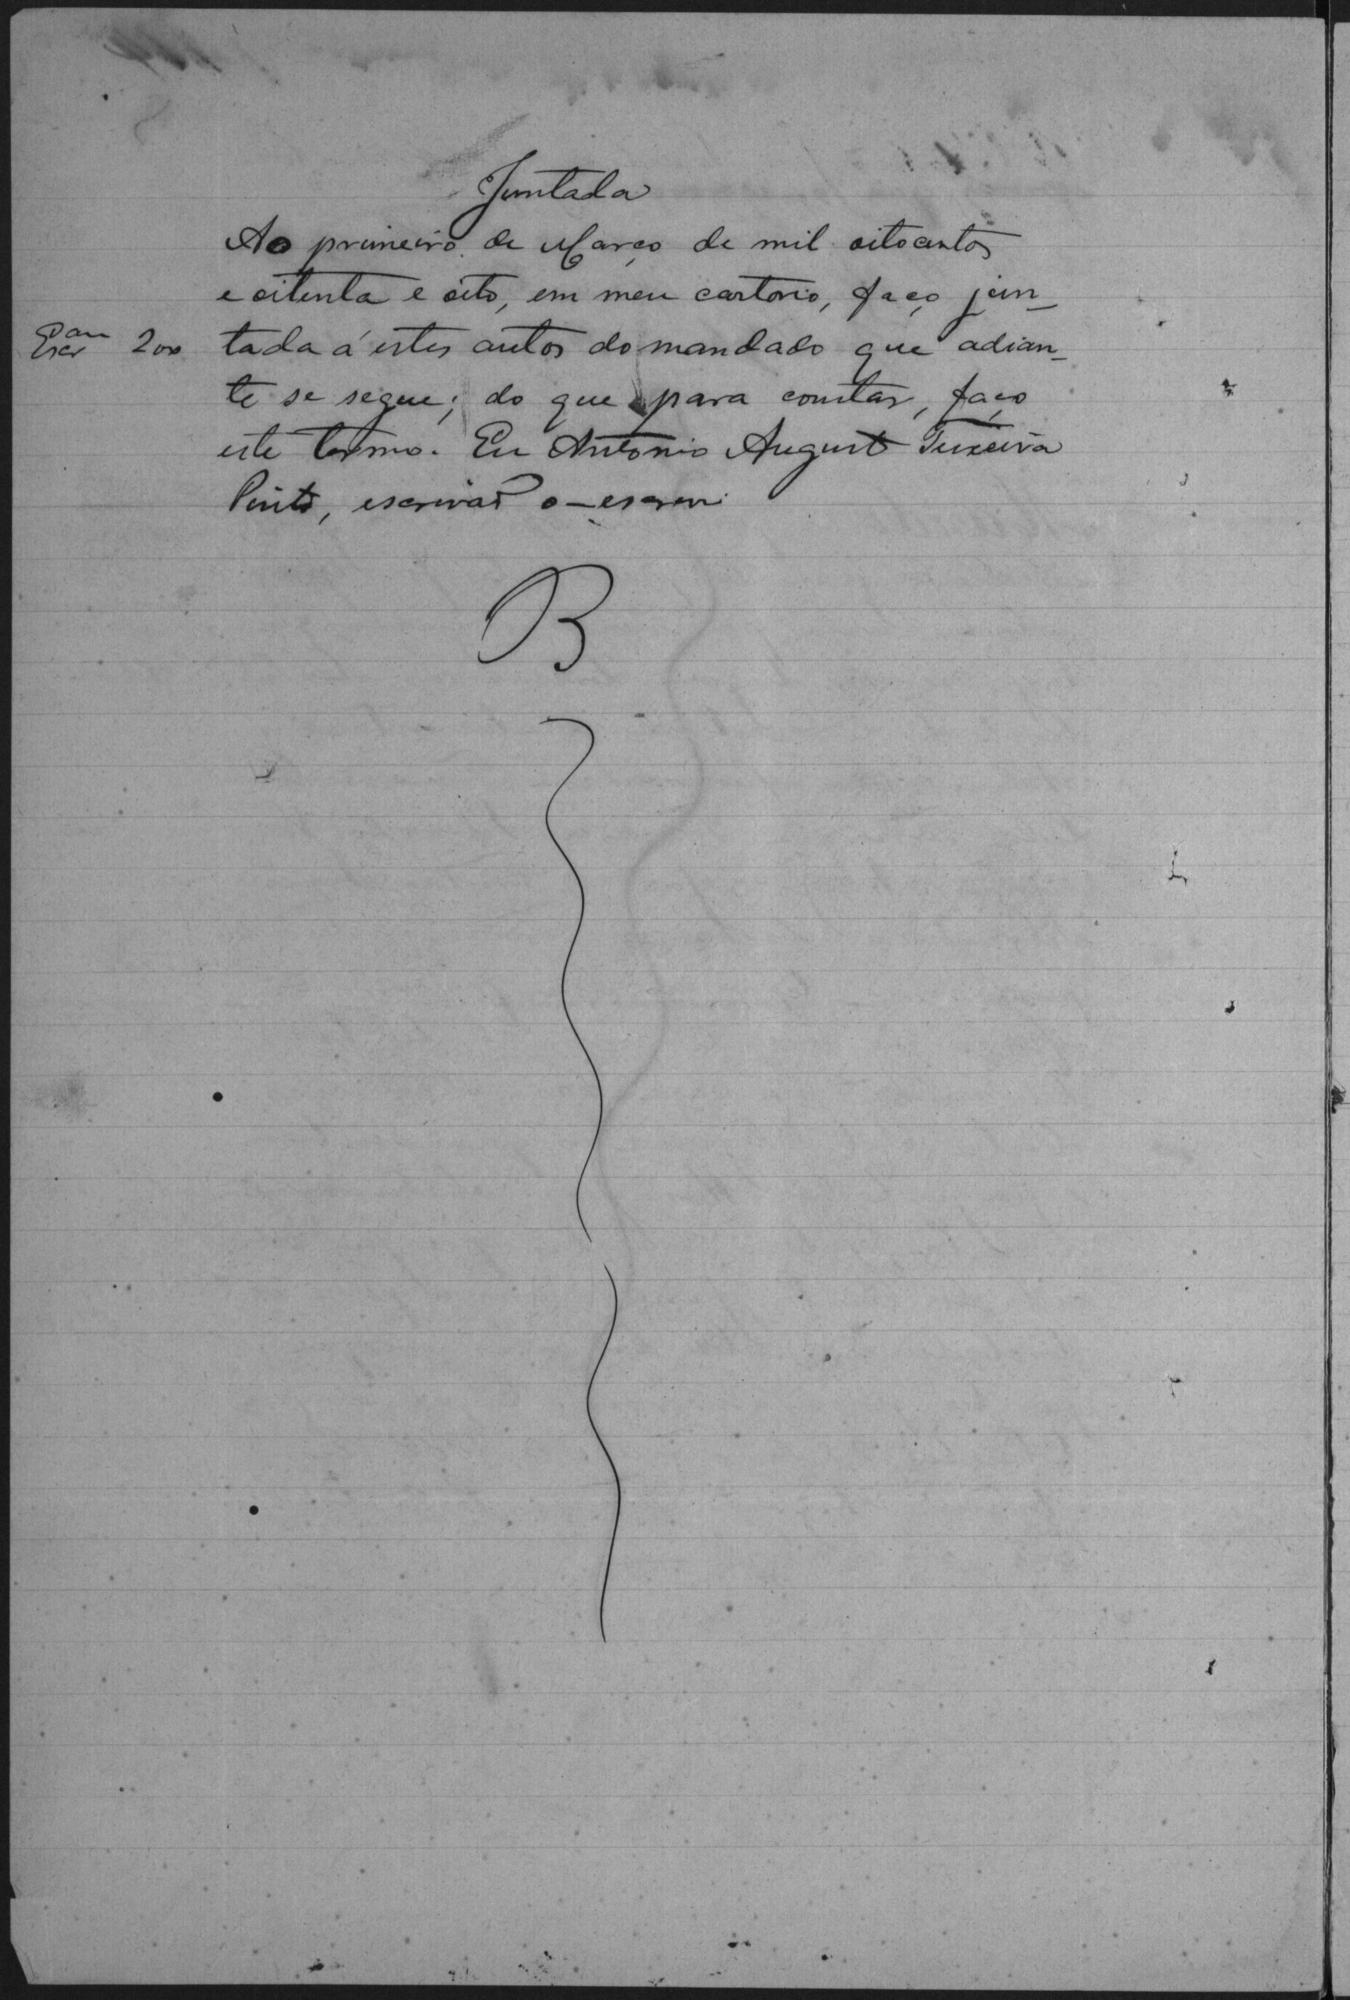 Juntada
Ao primeiro de Março de mil oitocentos
e oitenta e oito, em meu cartorio, faço jun-
Escr 200 tada á estes autos do mandado que adian-
te se segue; do que para constar, faço
este termo. Eu Antonio Augusto Teixeira
Pinto, escrivão o-escrevi.
B